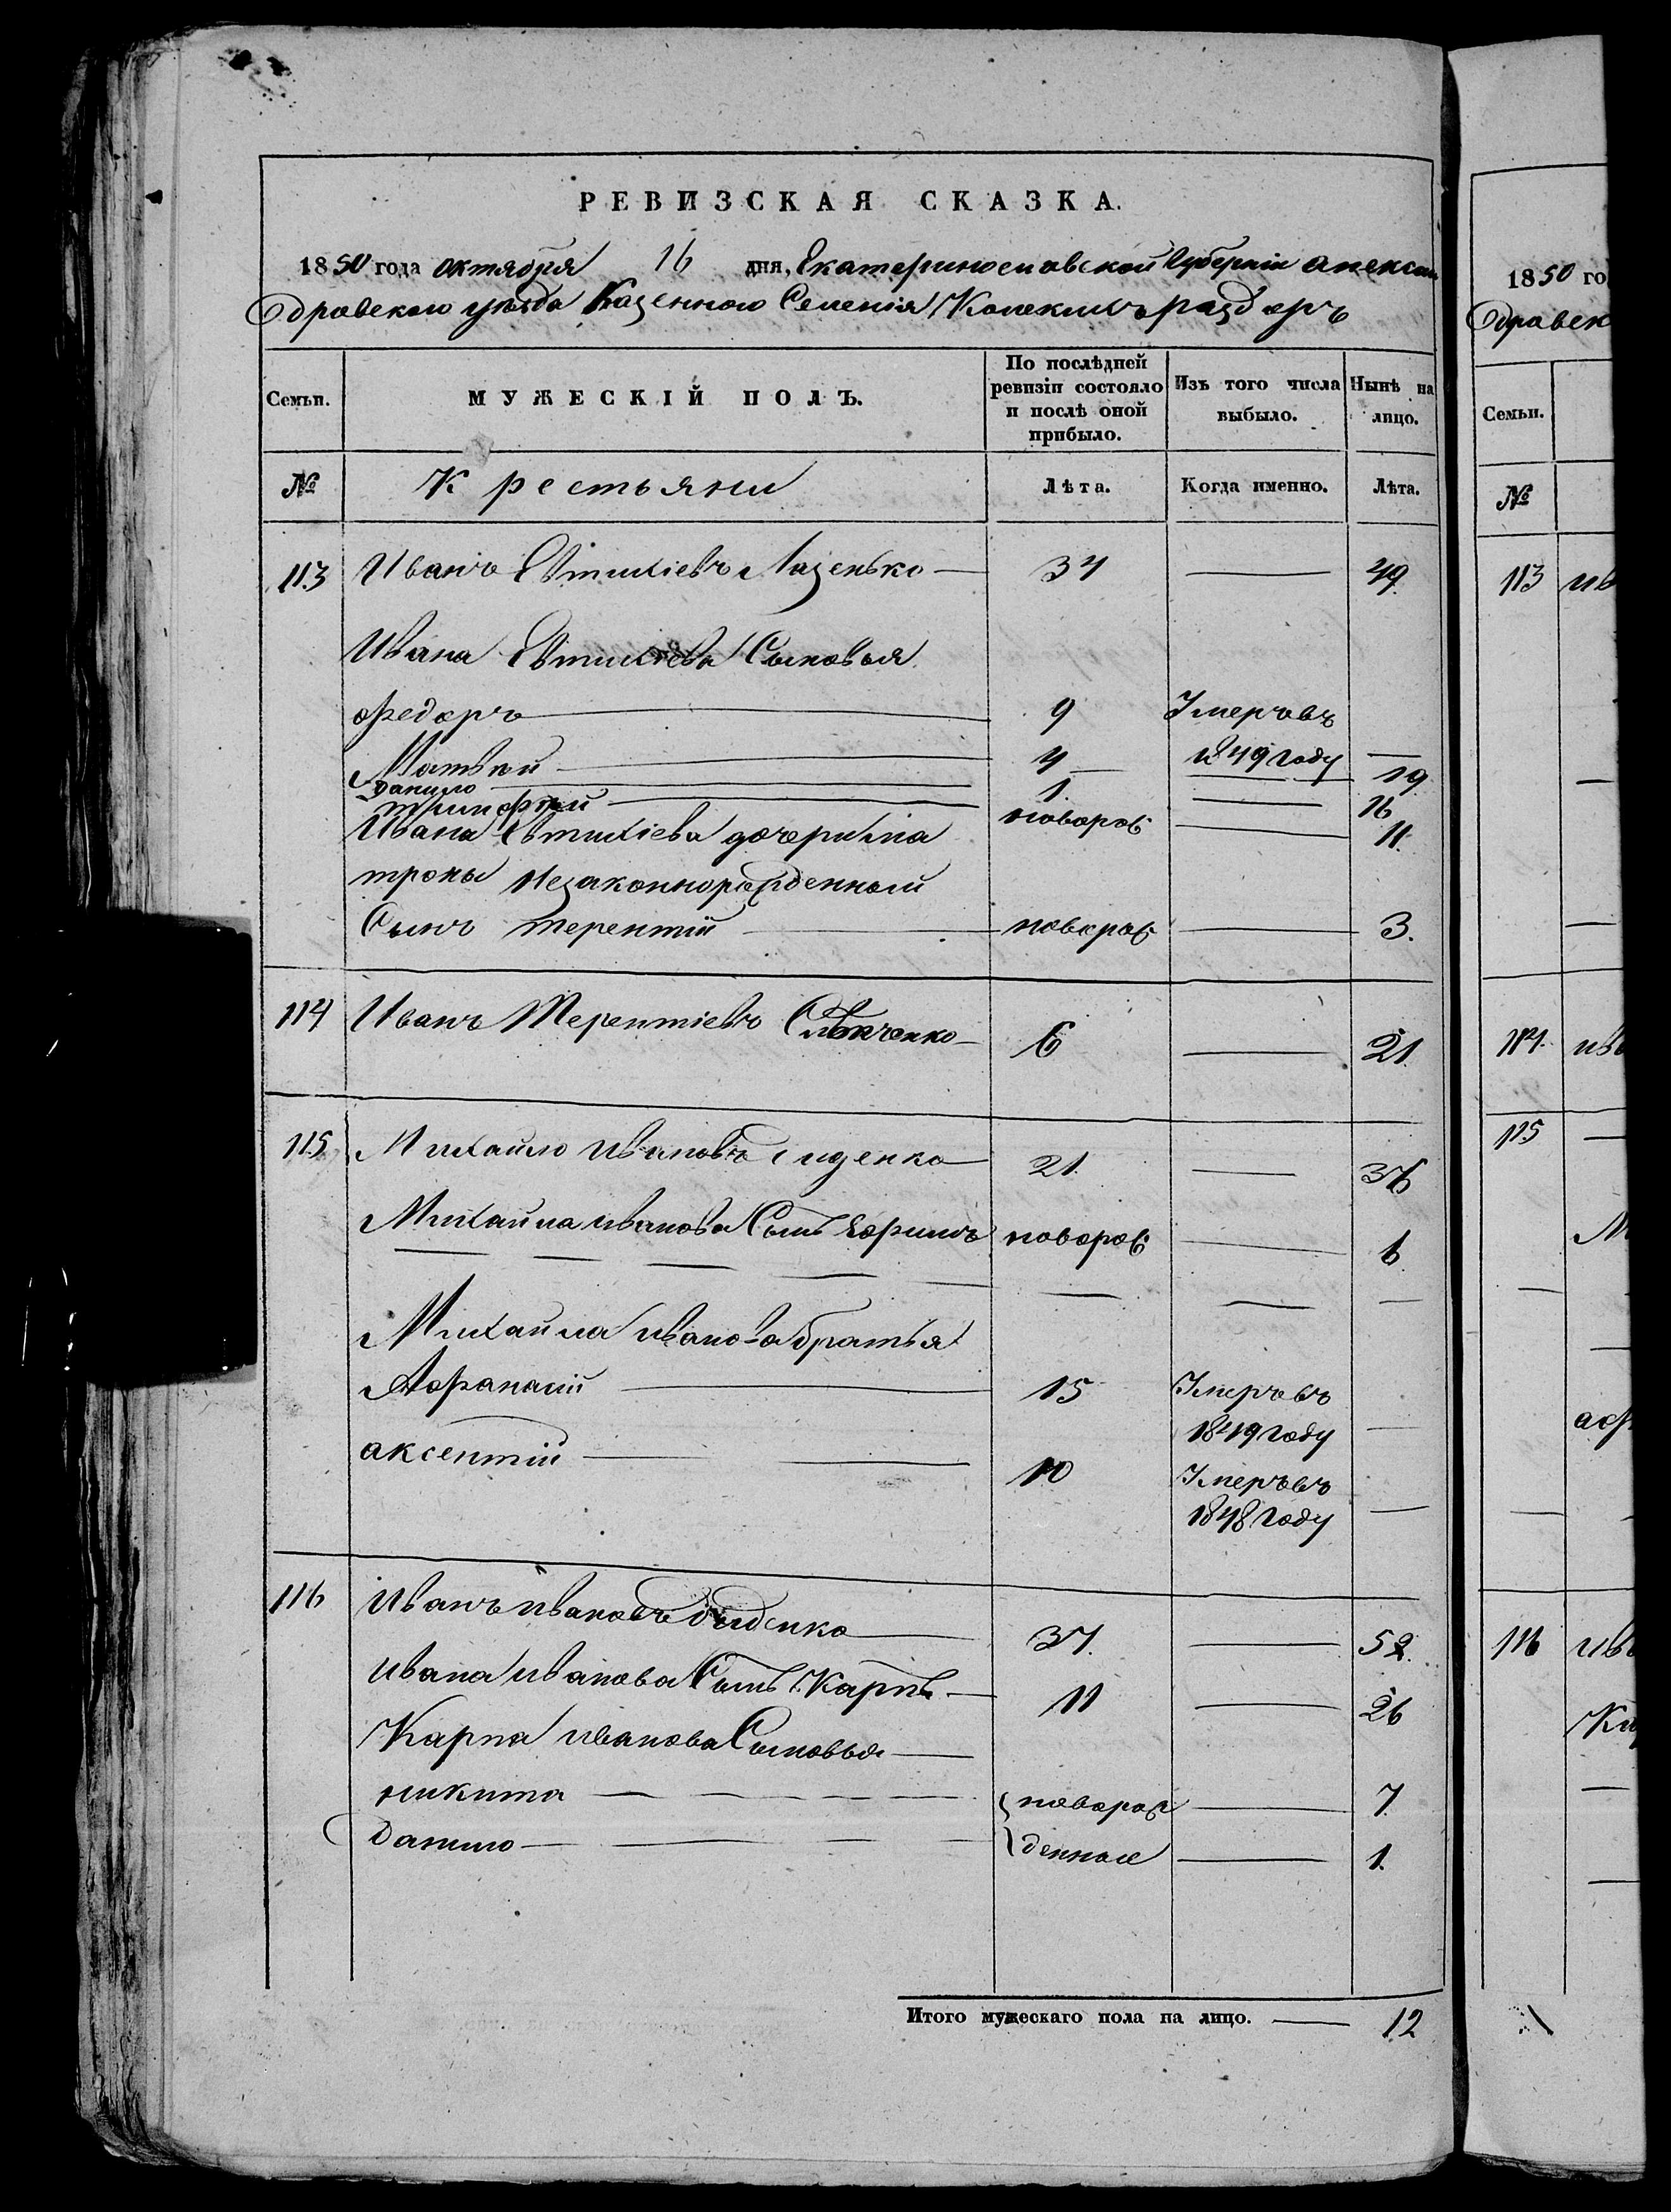 РЕВИЗСКАЯ СКАЗКА.
1850 года октября 16 дня, Екатеринославской Губерніи алексан
дровского уѣзда Казенного Селенія раздоръ
Семьи. МУЖЕСКІЙ ПОЛЪ. По послѣдней ревизіи состояло и послѣ оной прибыло. Изъ того числа выбыло. Нынѣ на лицо.
№ Крестьяни Лѣта. Когда именно. Лѣта.
113 Иванъ Евтихіевъ Лазенько 34 49
Ивана Евтихіева Сыновья
федоръ 9 Умеръ въ
Матвѣй 4 1849 году 19
Данило 1. 16
новорож 11.
Ивана Евтихіева дочери па
троны Незаконнорожденный
Сынъ терентій новорож 3.
114 Иванъ Терентіевъ 6 21.
115 Михайло Ивановъ 21. 36
Михайла иванова Сынъ новорож 1
Михайла иванова братья
Афанасій 15 Умеръ въ
1849 году
аксентій 10 Умеръ въ
1848 году
116 Иванъ ивановъ 37. 52.
ивана иванова Сынъ Карпъ 11 26
Карпа иванова Сыновья
никита новорож 7.
Данило денные 1.
Итого мужескаго пола на лицо. 12
1850 го
дровск
Семьи.
№
113 ив
114. ив
115
М
аф
116 ив
Ка